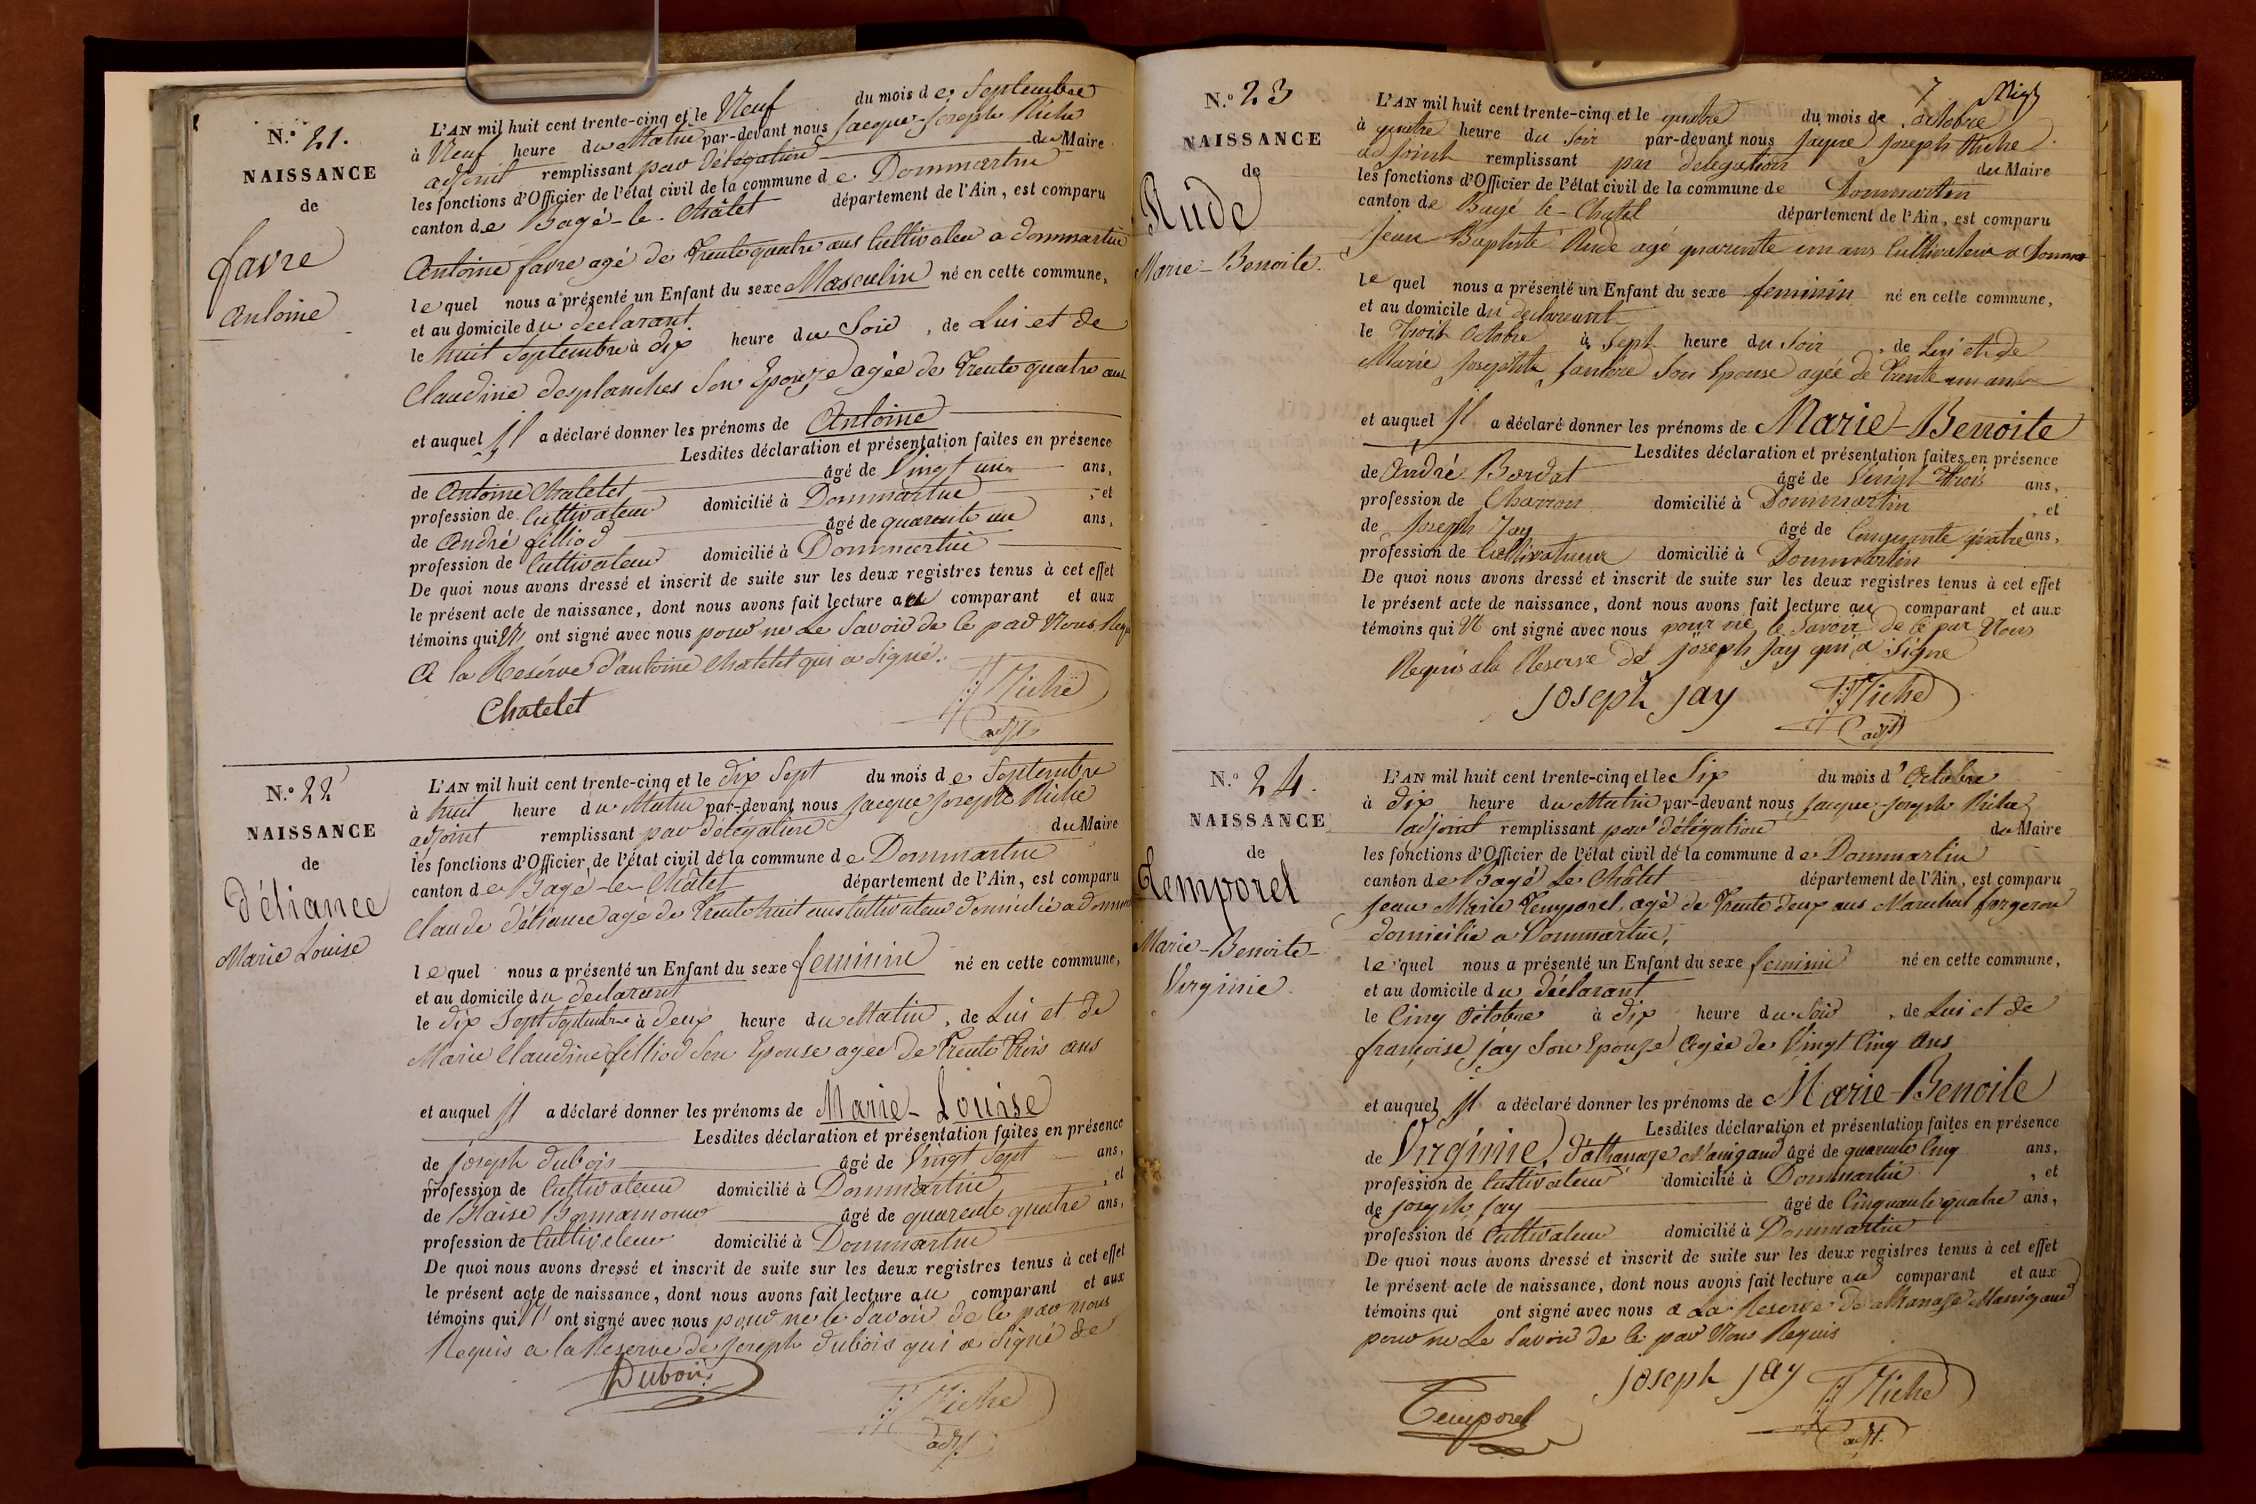 N.o 21.
NAISSANCE
de
favre
antoine
L'AN mil huit cent trente-cinq et le Neuf du mois de Septembre
à Neuf heure du Matin par-devant nous Jacque-Joseph Riche
adjoint remplissant par délégation du Maire
les fonctions d'Officier de l'état civil de la commune de Dommartin
canton de Bagé-le-Châtel département de l'Ain, est comparu
Antoine favre agé de trente quatre ans Cultivateur a dommartin
lequel nous a présenté un Enfant du sexe Masculin né en cette commune,
et au domicile du declarant
le huit Septembre à dix heure du Soir, de Lui et de
Claudine desplanches Son Epouze agée de trente quatre ans
et auquel Il a déclaré donner les prénoms de Antoine
Lesdites déclaration et présentation faites en présence
de Antoine Chatelet âgé de Vingt un ans,
profession de Cultivateur domicilié à Dommartin, et
de André filliod âgé de quarante un ans,
profession de Cultivateur domicilié à Dommartin
De quoi nous avons dressé et inscrit de suite sur les deux registres tenus à cet effet
le présent acte de naissance, dont nous avons fait lecture au comparant et aux
témoins qui N' ont signé avec nous pour ne Le Savoir de ce par Nous Requis
A la Resérve d'antoine Chatelet qui a Signé.
Chatelet
Riche
adjt
N.o 22
NAISSANCE
de
Déliance
Marie Louise
L'AN mil huit cent trente-cinq et le dix Sept du mois de Septembre
à huit heure du Matin par-devant nous Jacque Joseph Riche
adjoint remplissant par délégation du Maire
les fonctions d'Officier de l'état civil de la commune de Dommartin
canton de Bagé-le-Châtel département de l'Ain, est comparu
Claude déliance agé de trente huit ans Cultivateur domicilié a domm
lequel nous a présenté un Enfant du sexe feminin né en cette commune,
et au domicile du declarant
le dix Sept Septembre à deux heure du Matin, de Lui et de
Marie Claudine filliod Son Epouse agee de trente trois ans
et auquel Il a déclaré donner les prénoms de Marie-Louise
Lesdites déclaration et présentation faites en présence
de Joseph dubois âgé de Vingt Sept ans,
profession de Cultivateur domicilié à Dommartin, et
de Blaise Bonnamour âgé de quarente quatre ans,
profession de Cultivateur domicilié à Dommartin
De quoi nous avons dressé et inscrit de suite sur les deux registres tenus à cet effet
le présent acte de naissance, dont nous avons fait lecture au comparant et aux
témoins qui N' ont signé avec nous pour ne le Savoir de ce par nous
Requis a la Reserve de Joseph dubois qui a Signé de
Dubois
Riche
adjt
7
N.o 23
NAISSANCE
de
Rude
Marie-Benoite.
L'AN mil huit cent trente-cinq et le quatre du mois de Octobre
à quatre heure du Soir par-devant nous Jaque Joseph Riche
adjoint remplissant par delegation du Maire
les fonctions d'Officier de l'état civil de la commune de Dommartin
canton de Bagé le-Chatel département de l'Ain, est comparu
Jean Baptiste Rude agé quarente un ans Cultivateur a Domma
lequel nous a présenté un Enfant du sexe feminin né en cette commune,
et au domicile du declareant
le Trois Octobre à Sept heure du Soir, de Lui et de
Marie Josephte Son Epouse agée de Trente un ans
et auquel Il a déclaré donner les prénoms de Marie-Benoite
Lesdites déclaration et présentation faites en présence
de André Bordat âgé de Vingt Trois ans,
profession de Charron domicilié à Dommartin, et
de Joseph Jay âgé de Cinquante quatre ans,
profession de Cultivateur domicilié à Dommartin
De quoi nous avons dressé et inscrit de suite sur les deux registres tenus à cet effet
le présent acte de naissance, dont nous avons fait lecture au comparant et aux
témoins qui N ont signé avec nous pour ne le Savoir de ce par Nous
Requis a la Reserve de joseph Jay qui a Signe
joseph jay
Riche
adjt
N.o 24.
NAISSANCE
de
Temporel
Marie-Benoite-
Virginie.
L'AN mil huit cent trente-cinq et le Six du mois d'Octobre
à dix heure du Matin par-devant nous Jacque-Joseph Riche
adjoint remplissant par délégation du Maire
les fonctions d'Officier de l'état civil de la commune de Dommartin
canton de Bagé Le Châtel département de l'Ain, est comparu
Jean Marie Temporel, agé de trente deux ans Marechal forgeron
domicilié a Dommartin,
lequel nous a présenté un Enfant du sexe feminin né en cette commune,
et au domicile du déclarant
le Cinq Octobre à dix heure du Soir, de Lui et de
françoise Jay Son Epouze Agée de Vingt Cinq ans
et auquel Il a déclaré donner les prénoms de Marie-Benoite
Lesdites déclaration et présentation faites en présence
de Virginie, d'athanaze Manigaud âgé de quarente Cinq ans,
profession de Cultivateur domicilié à Dommartin, et
de Joseph Jay âgé de Cinquante quatre ans,
profession de Cultivateur domicilié à Dommartin
De quoi nous avons dressé et inscrit de suite sur les deux registres tenus à cet effet
le présent acte de naissance, dont nous avons fait lecture au comparant et aux
témoins qui ont signé avec nous a La Reserve de athanase Manigaud
pour ne Le Savoir de ce par Nous Requis
Temporel
joseph jay
Riche
adjt.